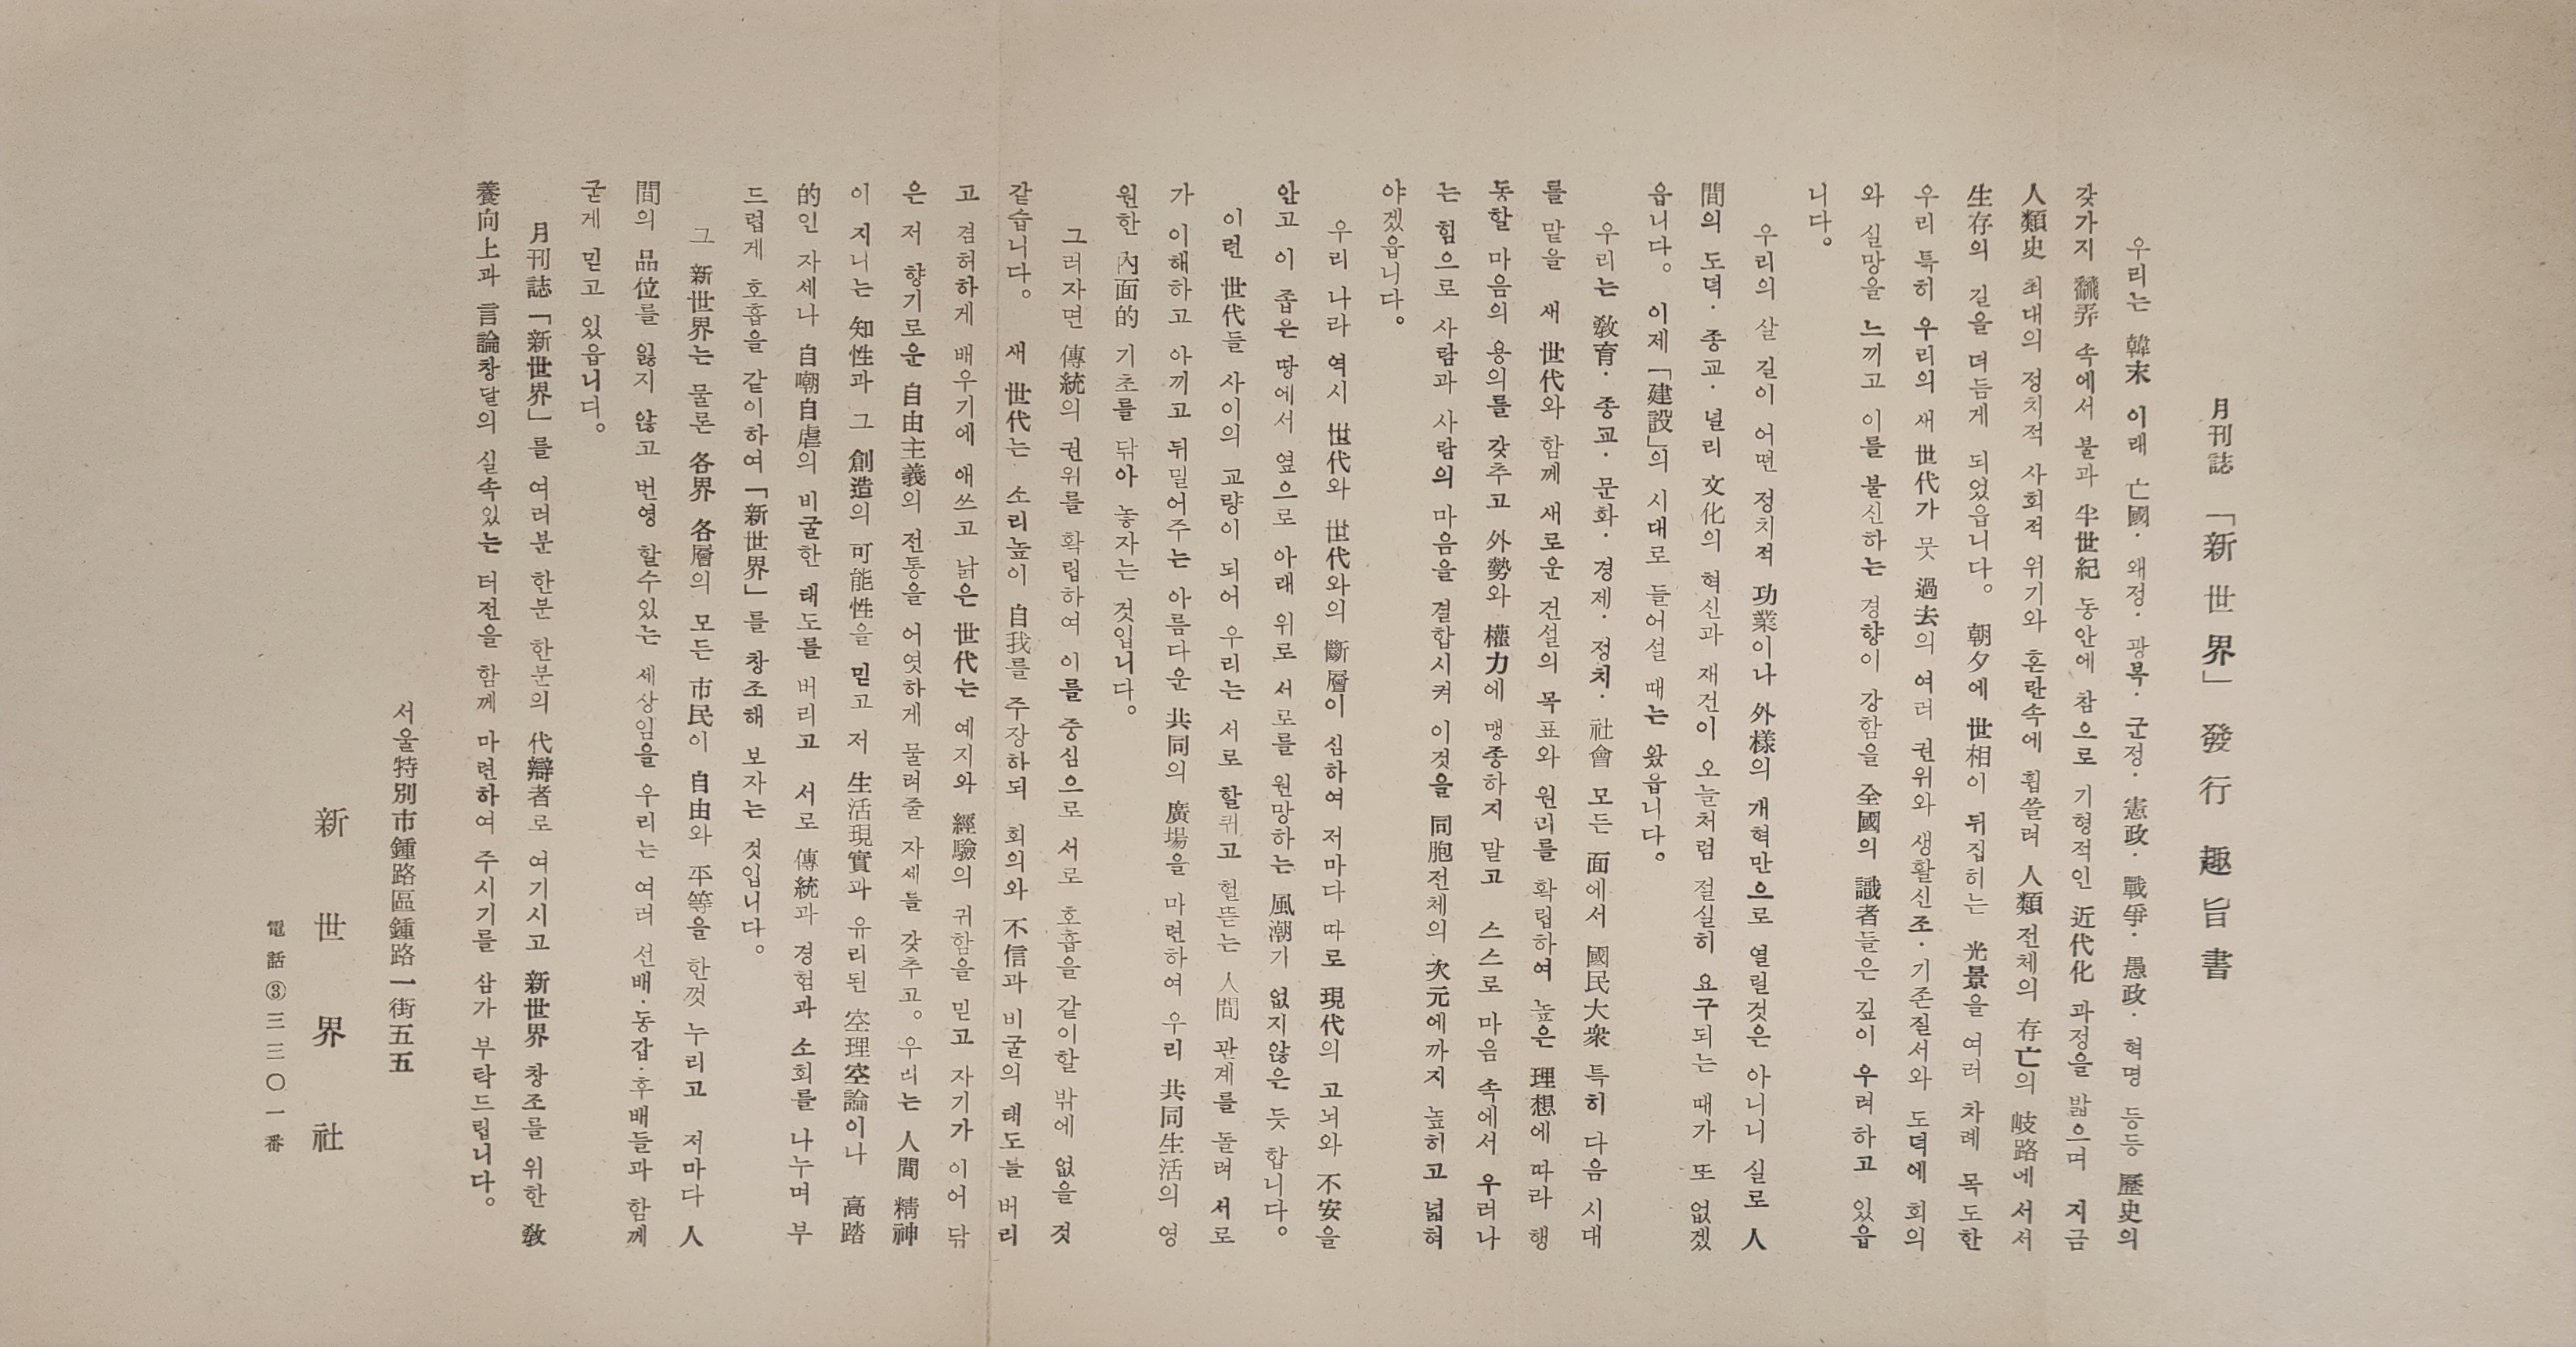 月刊誌 「新世界」 發行 趣旨書
우리는 韓末 이래 亡國·왜정·광복·군정·憲政·戰爭·愚政·혁명 등등 歷史의
갖가지 飜弄 속에서 불과 半世紀 동안에 참으로 기형적인 近代化 과정을 밟으며 지금
人類史 최대의 정치적 사회적 위기와 혼란속에 휩쓸려 人類 전체의 存亡의 岐路에 서서
生存의 길을 더듬게 되었읍니다。 朝夕에 世相이 뒤집히는 光景을 여러 차례 목도한
우리 특히 우리의 새 世代가 뭇 過去의 여러 권위와 생활신조·기존질서와 도덕에 회의
와 실망을 느끼고 이를 불신하는 경향이 강함을 全國의 識者들은 깊이 우려하고 있읍
니다。
우리의 살 길이 어떤 정치적 功業이나 外樣의 개혁만으로 열릴것은 아니니 실로 人
間의 도덕·종교·널리 文化의 혁신과 재건이 오늘처럼 절실히 요구되는 때가 또 없겠
읍니다。 이제 「建設」의 시대로 들어설 때는 왔읍니다。
우리는 敎育·종교·문화·경제·정치·社會 모든 面에서 國民大衆 특히 다음 시대
를 맡을 새 世代와 함께 새로운 건설의 목표와 원리를 확립하여 높은 理想에 따라 행
동할 마음의 용의를 갖추고 外勢와 權力에 맹종하지 말고 스스로 마음 속에서 우러나
는 힘으로 사람과 사람의 마음을 결합시켜 이것을 同胞전체의 次元에까지 높히고 넓혀
야겠읍니다。
우리 나라 역시 世代와 世代와의 斷層이 심하여 저마다 따로 現代의 고뇌와 不安을
안고 이 좁은 땅에서 옆으로 아래 위로 서로를 원망하는 風潮가 없지않은 듯 합니다。
이런 世代들 사이의 교량이 되어 우리는 서로 할퀴고 헐뜯는 人間 관계를 돌려 서로
가 이해하고 아끼고 뒤밀어주는 아름다운 共同의 廣場을 마련하여 우리 共同生活의 영
원한 內面的 기초를 닦아 놓자는 것입니다。
그러자면 傳統의 권위를 확립하여 이를 중심으로 서로 호흡을 같이할 밖에 없을 것
같습니다。 새 世代는 소리높이 自我를 주장하되 회의와 不信과 비굴의 태도를 버리
고 겸허하게 배우기에 애쓰고 낡은 世代는 예지와 經驗의 귀함을 믿고 자기가 이어 닦
은 저 향기로운 自由主義의 전통을 어엿하게 물려줄 자세를 갖추고。 우리는 人間 精神
이 지니는 知性과 그 創造의 可能性을 믿고 저 生活現實과 유리된 空理空論이나 高踏
的인 자세나 自嘲自虐의 비굴한 태도를 버리고 서로 傳統과 경험과 소회를 나누며 부
드럽게 호흡을 같이하여 「新世界」를 창조해 보자는 것입니다。
그 新世界는 물론 各界 各層의 모든 市民이 自由와 平等을 한껏 누리고 저마다 人
間의 品位를 잃지 않고 번영 할수있는 세상임을 우리는 여러 선배·동갑·후배들과 함께
굳게 믿고 있읍니다。
月刊誌「新世界」를 여러분 한분 한분의 代辯者로 여기시고 新世界 창조를 위한 敎
養向上과 言論창달의 실속있는 터전을 함께 마련하여 주시기를 삼가 부탁드립니다。
서울特別市鍾路區鍾路一街五五
新世界社
電話③三三〇一番